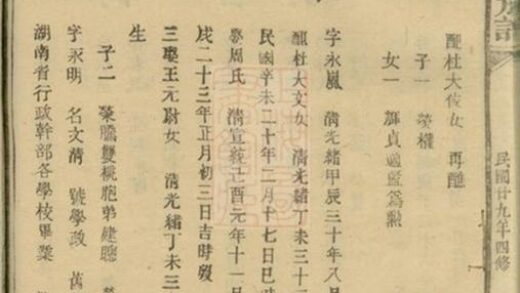 民國廿九年四修
配杜大俊女 再醮
子一 榮權
女一 貞適藍為勳
字永嵐 清光緒甲辰三十年八月
配杜大文女 清光緒丁未三十三
民國辛未二十年二月十七日巳
娶周氏 清宣統己酉元年十一
戌二十三年正月初三日吉時歿
三娶王元尉女 清光緒丁未三
生
子二 榮騰雙祧胞弟建聰
字永明 名文清 號學政
湖南省行政幹部各學校畢業